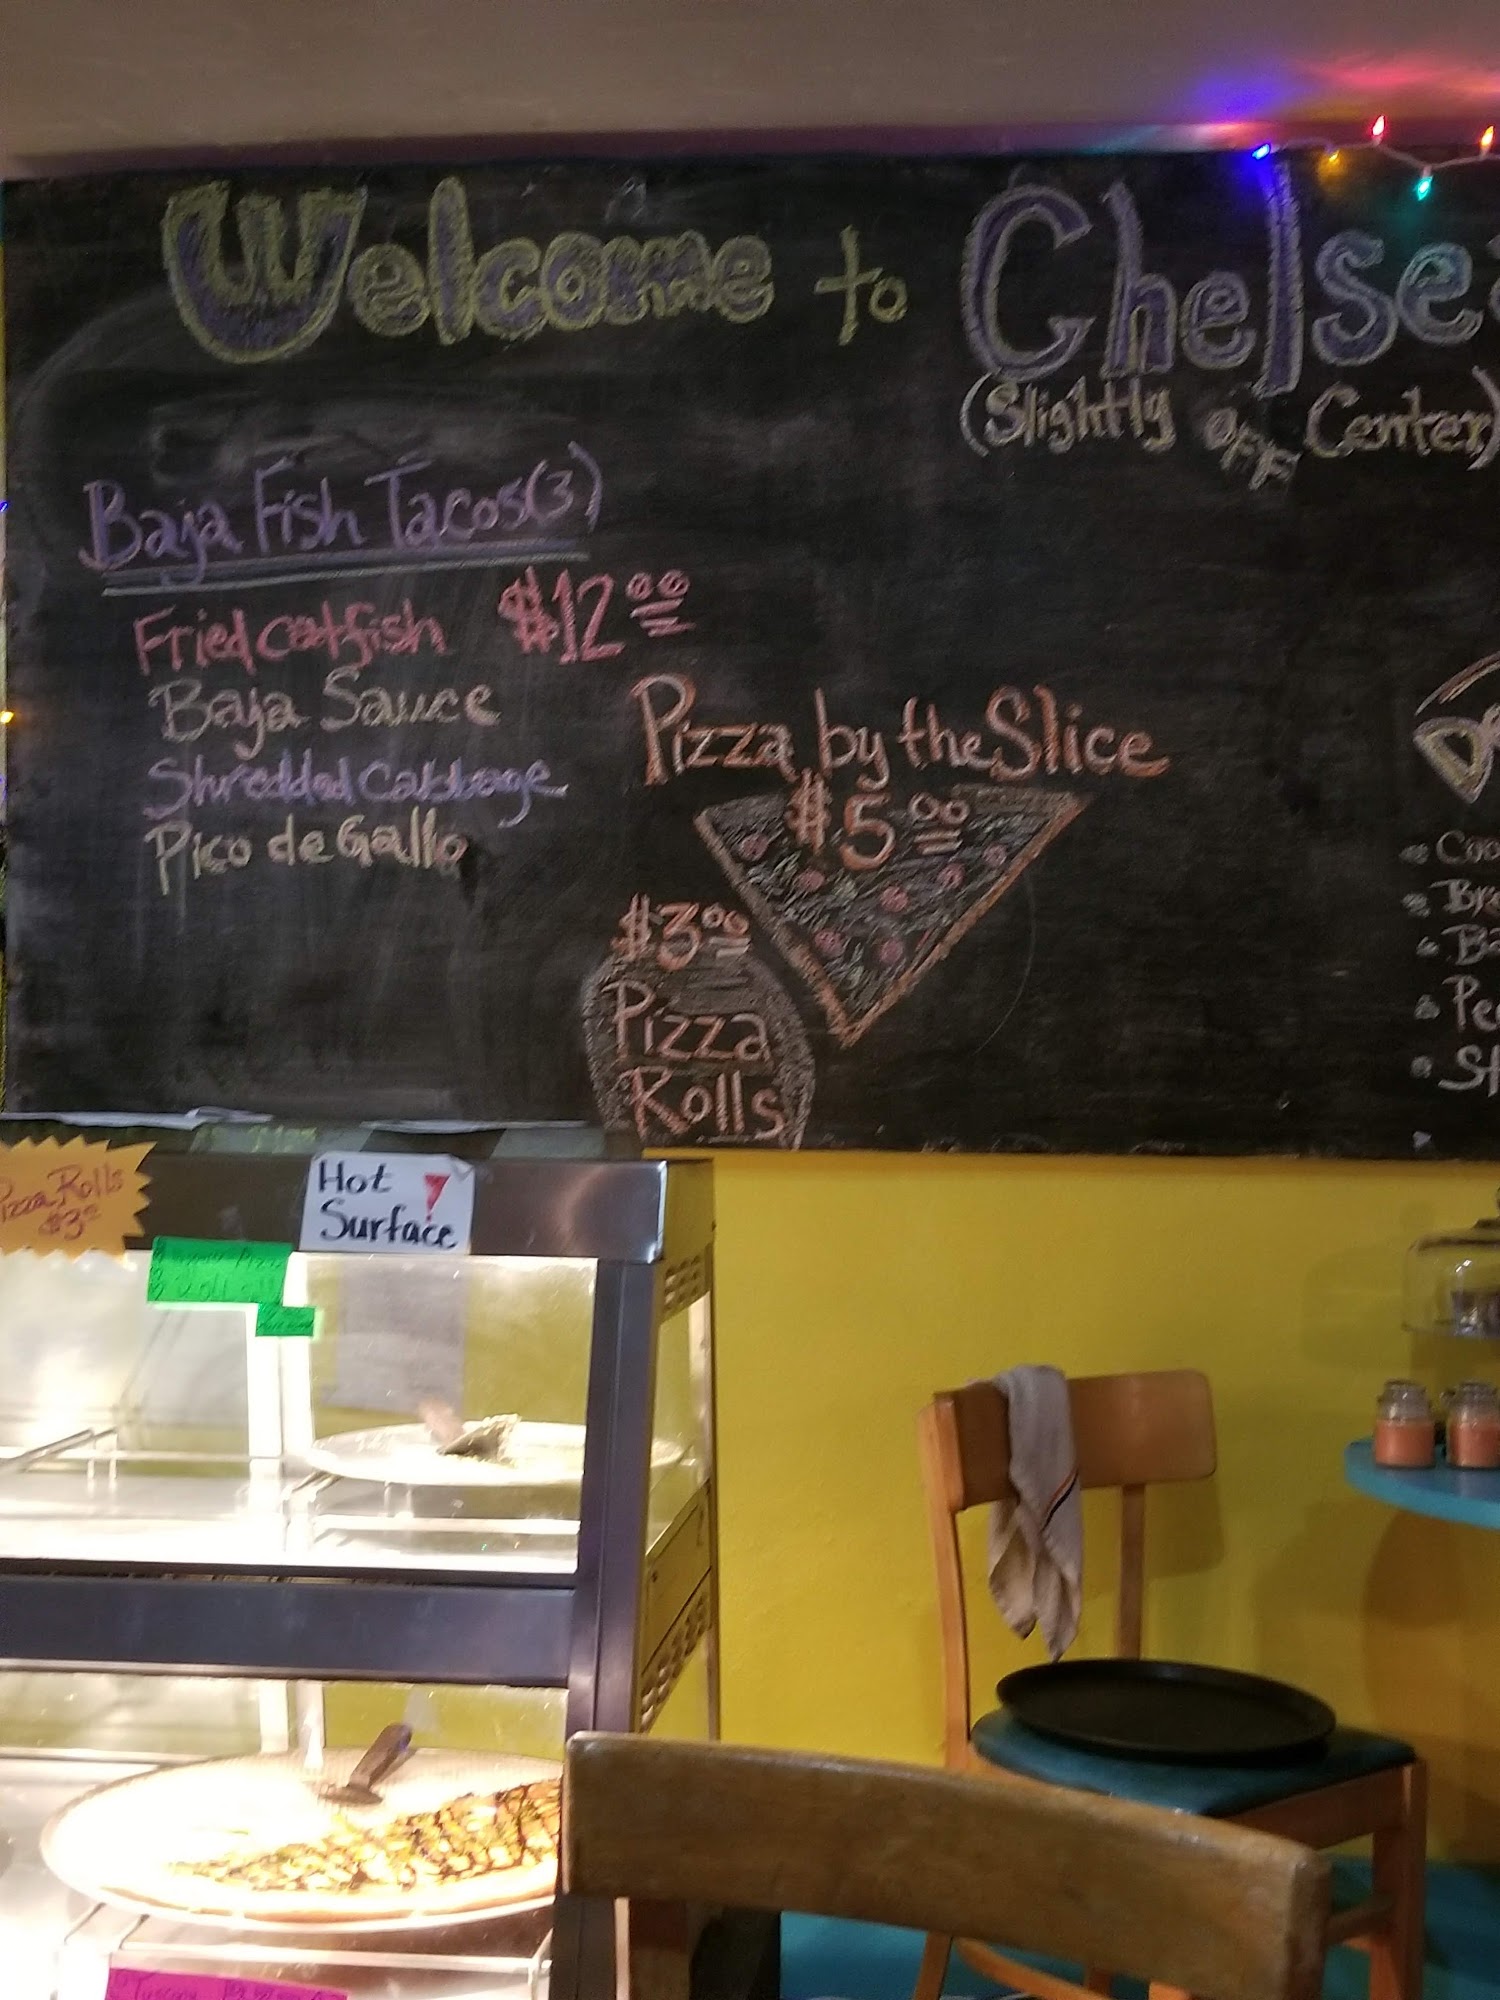 Welcome to Chelse
(Slightly OFF Center)
Baja Fish Tacos(3)
Fried catfish $12.00
Baja Sauce
Shredded Cabbage
Pico de Gallo
Pizza by the Slice
$5.00
$3.00
Pizza
Rolls
Pizza Rolls
$3
Hot
Surface